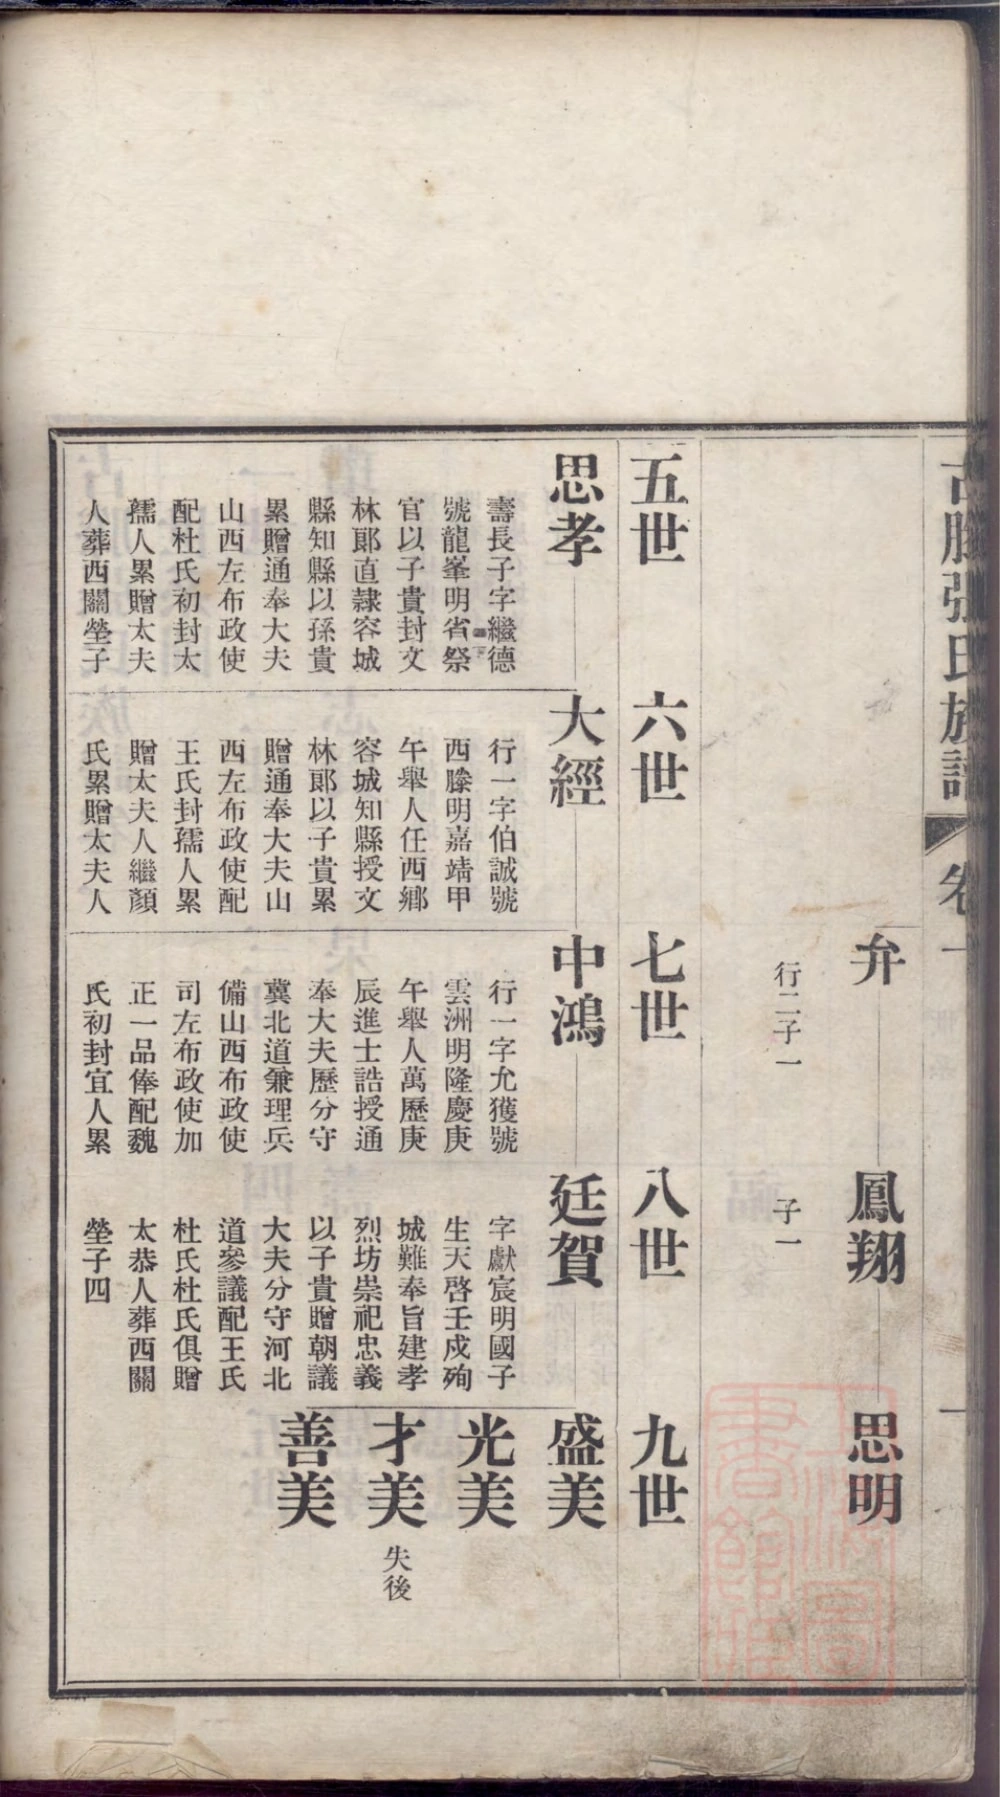 古滕張氏族譜 卷一 一
弁
行二子一
鳳翔
子一
思明
五世
六世
七世
八世
九世
思孝
壽長子字繼德
號龍峯明省祭
官以子貴封文
林郎直隸容城
縣知縣以孫貴
累贈通奉大夫
山西左布政使
配杜氏初封太
孺人累贈太夫
人葬西關塋子
大經
行一字伯誠號
西滕明嘉靖甲
午舉人任西鄉
容城知縣授文
林郎以子貴累
贈通奉大夫山
西左布政使配
王氏封孺人累
贈太夫人繼顏
氏累贈太夫人
中鴻
行一字允獲號
雲洲明隆慶庚
午舉人萬歷庚
辰進士誥授通
奉大夫歷分守
冀北道兼理兵
備山西布政使
司左布政使加
正一品俸配魏
氏初封宜人累
廷賀
字獻宸明國子
生天啓壬戌殉
城難奉旨建孝
烈坊崇祀忠義
以子貴贈朝議
大夫分守河北
道參議配王氏
杜氏杜氏俱贈
太恭人葬西關
塋子四
盛美
光美
才美
失後
善美